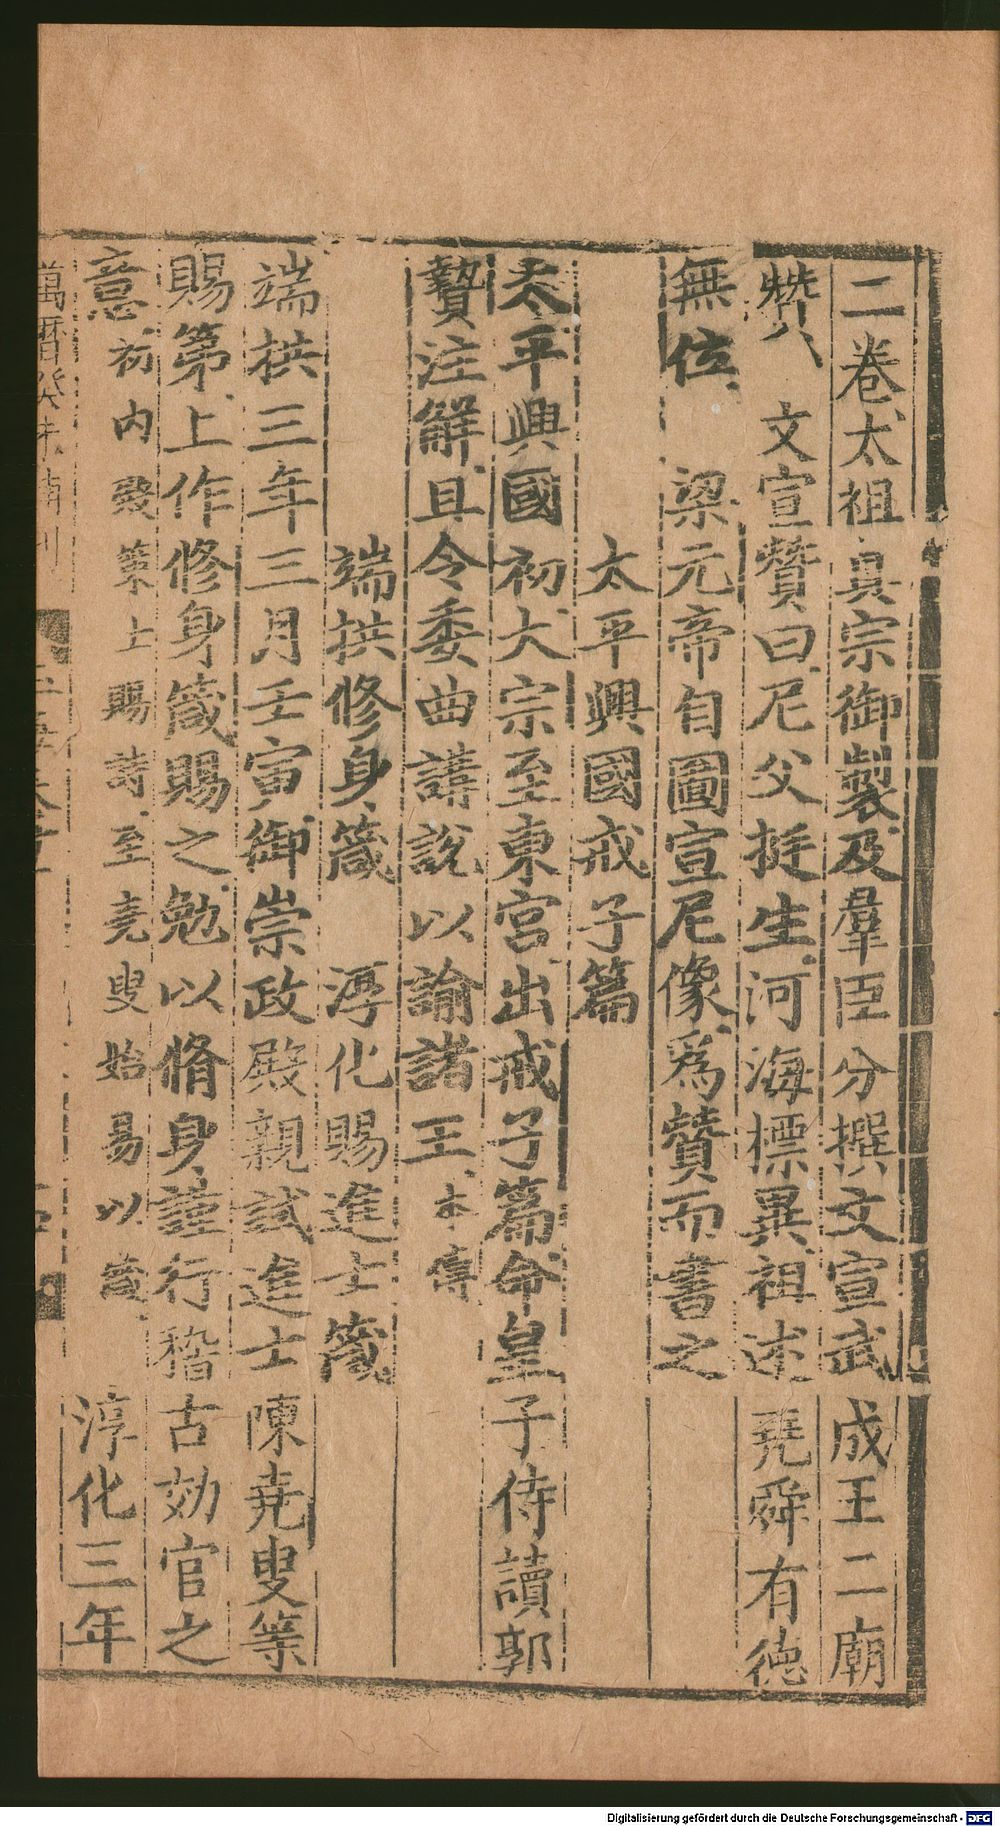 二卷太祖真宗御製及羣臣分撰文宣武成王二廟
贊 文宣贊曰尼父挺生河海標異祖述堯舜有德
無位 梁元帝自圖宣尼像爲贊而書之
太平興國戒子篇
太平興國初太宗至東宮出戒子篇命皇子侍讀郭
贄注解且令委曲講說以諭諸王本傳
端拱修身箴 淳化賜進士箴
端拱三年三月壬寅御崇政殿親試進士陳堯叟等
賜第上作修身箴賜之勉以脩身謹行稽古効官之
意初內發策上賜詩至堯叟始易以箴 淳化三年
萬曆癸未補刊
Digitalisierung gefördert durch die Deutsche Forschungsgemeinschaft - DFG